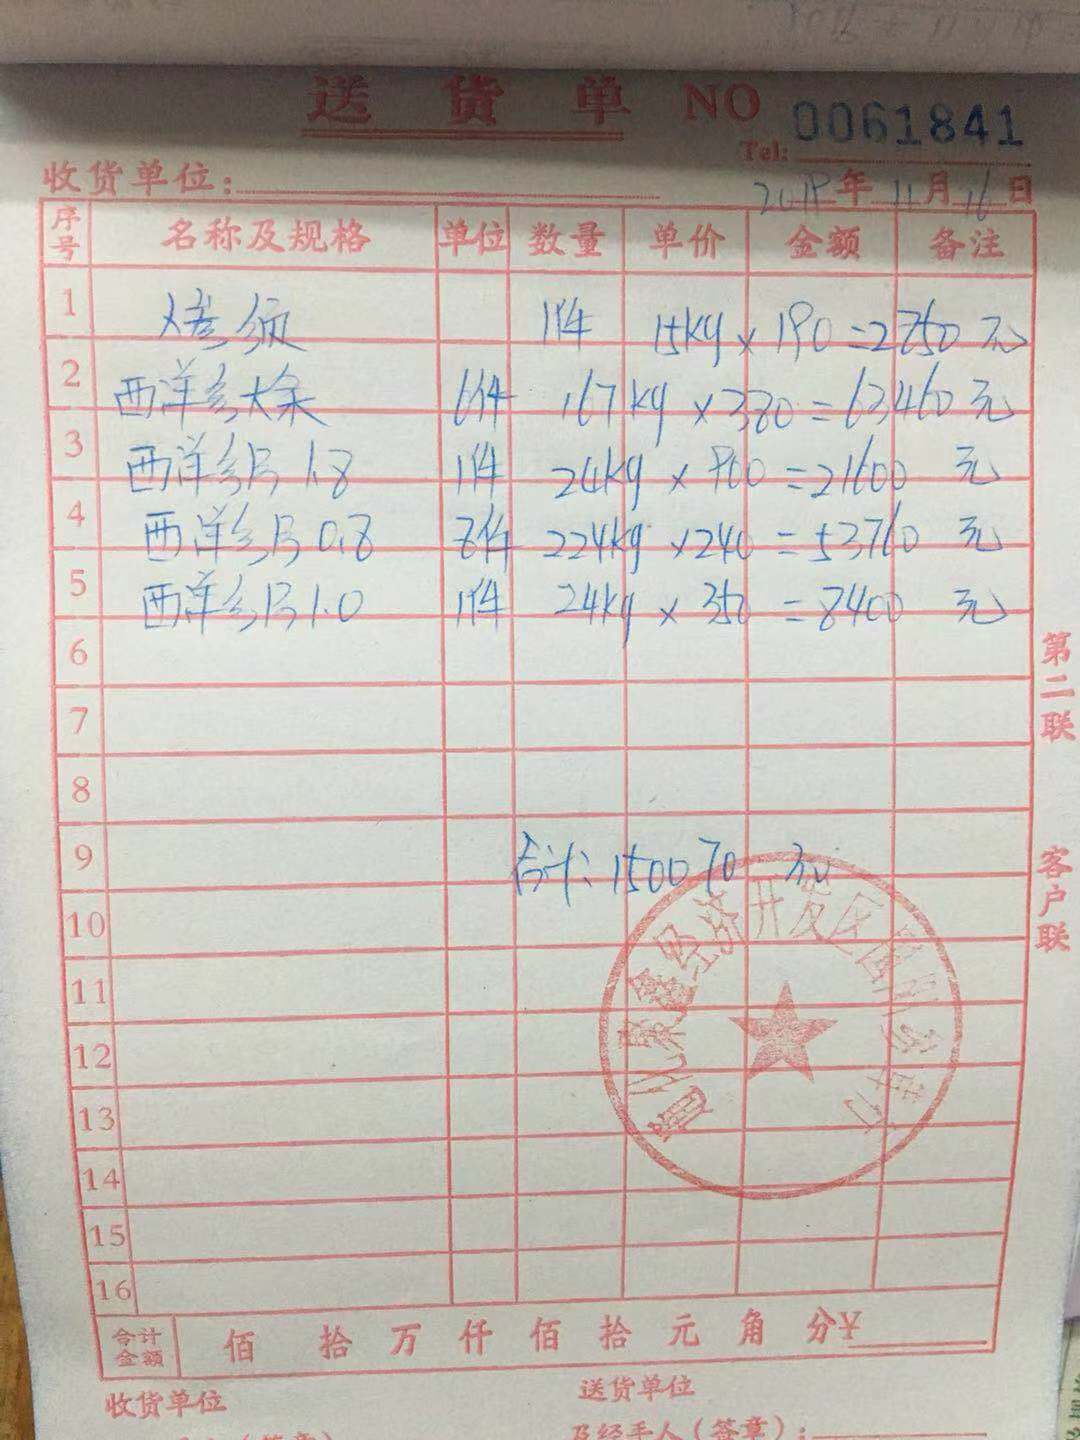 送货单 NO 0061841
Tel:
收货单位:
2019年11月16日
序号 名称及规格 单位 数量 单价 金额 备注
1 参须 1件 15kg×190=2850元
2 西洋参大条 6件 167kg×380=63460元
3 西洋参片1.8 1件 24kg×900=21600元
4 西洋参片0.8 8件 224kg×240=53760元
5 西洋参片1.0 1件 24kg×350=8400元
6
7
8
9 合计:150070元
10
11
12
13
14
15
16
合计金额 佰拾万仟佰拾元角分¥
收货单位 送货单位
及经手人(签章):
第二联
客户联
经济开发区